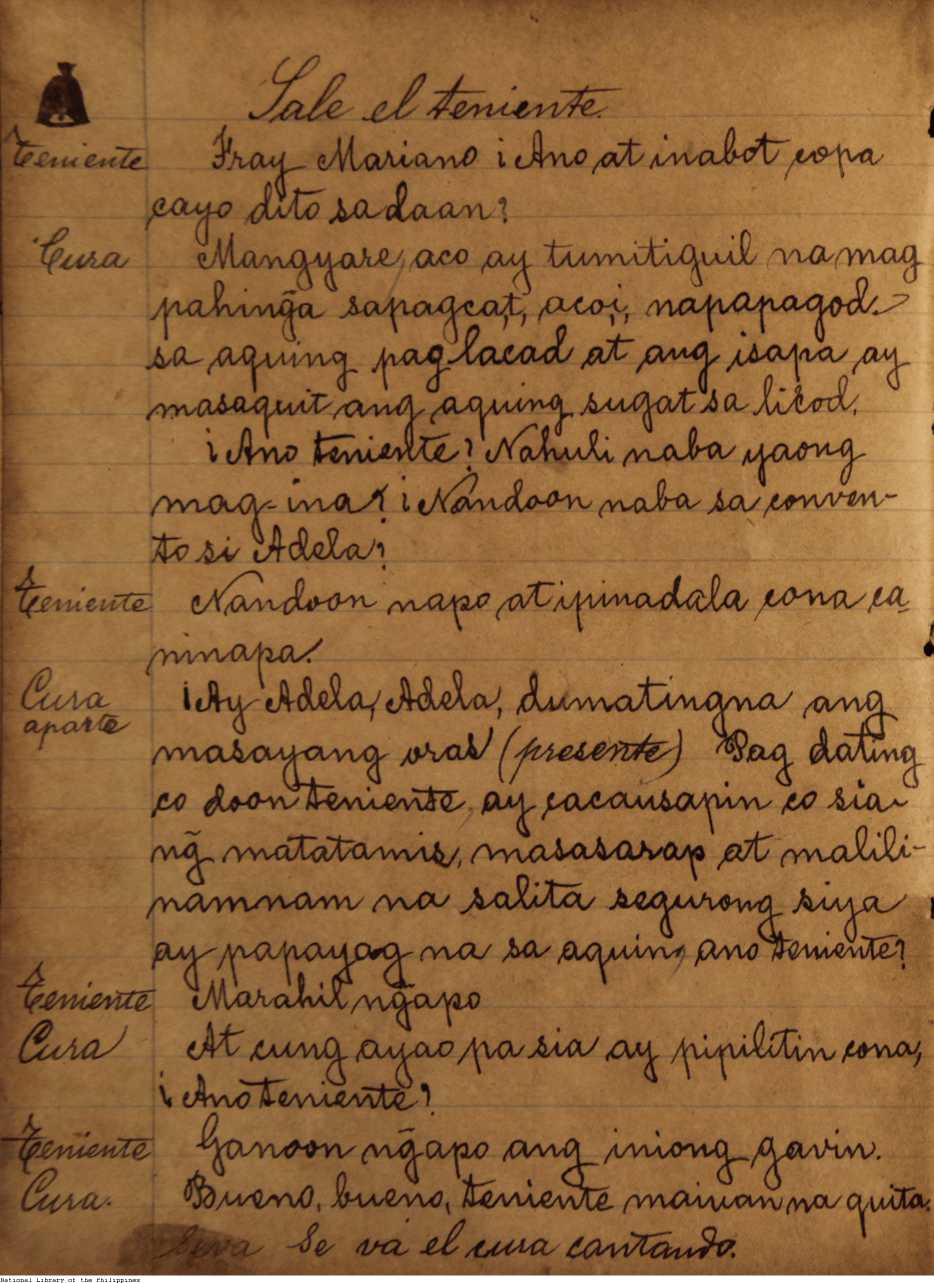 Sale el teniente.
Teniente Fray Mariano ¡Ano at inabot copa
cayo dito sa daan?
Cura Mangyare, aco ay tumitiguil na mag
pahinga sapagca,t, aco,i, napapagod.
sa aquing paglacad at ang isapa ay
masaquit ang aquing sugat sa licod.
¡Ano teniente? Nahuli naba yaong
mag-ina? ¡Nandoon naba sa conven-
to si Adela?
Teniente Nandoon napo at ipinadala cona ca-
ninapa.
Cura aparte ¡Ay Adela, Adela, dumatingna ang
masayang oras (presente) Pag dating
co doon teniente, ay cacausapin co sia
ng̃ matatamis, masasarap at malili-
namnam na salita segurong siya
ay papayag na sa aquin, ano teniente?
Teniente Marahil ng̃apo
Cura At cung ayao pa sia ay pipilitin cona,
¡Ano teniente?
Teniente Ganoon ng̃apo ang iniong gavin.
Cura. Bueno, bueno, teniente maiuan na quita.
Se va el cura cantando.
National Library of the Philippines